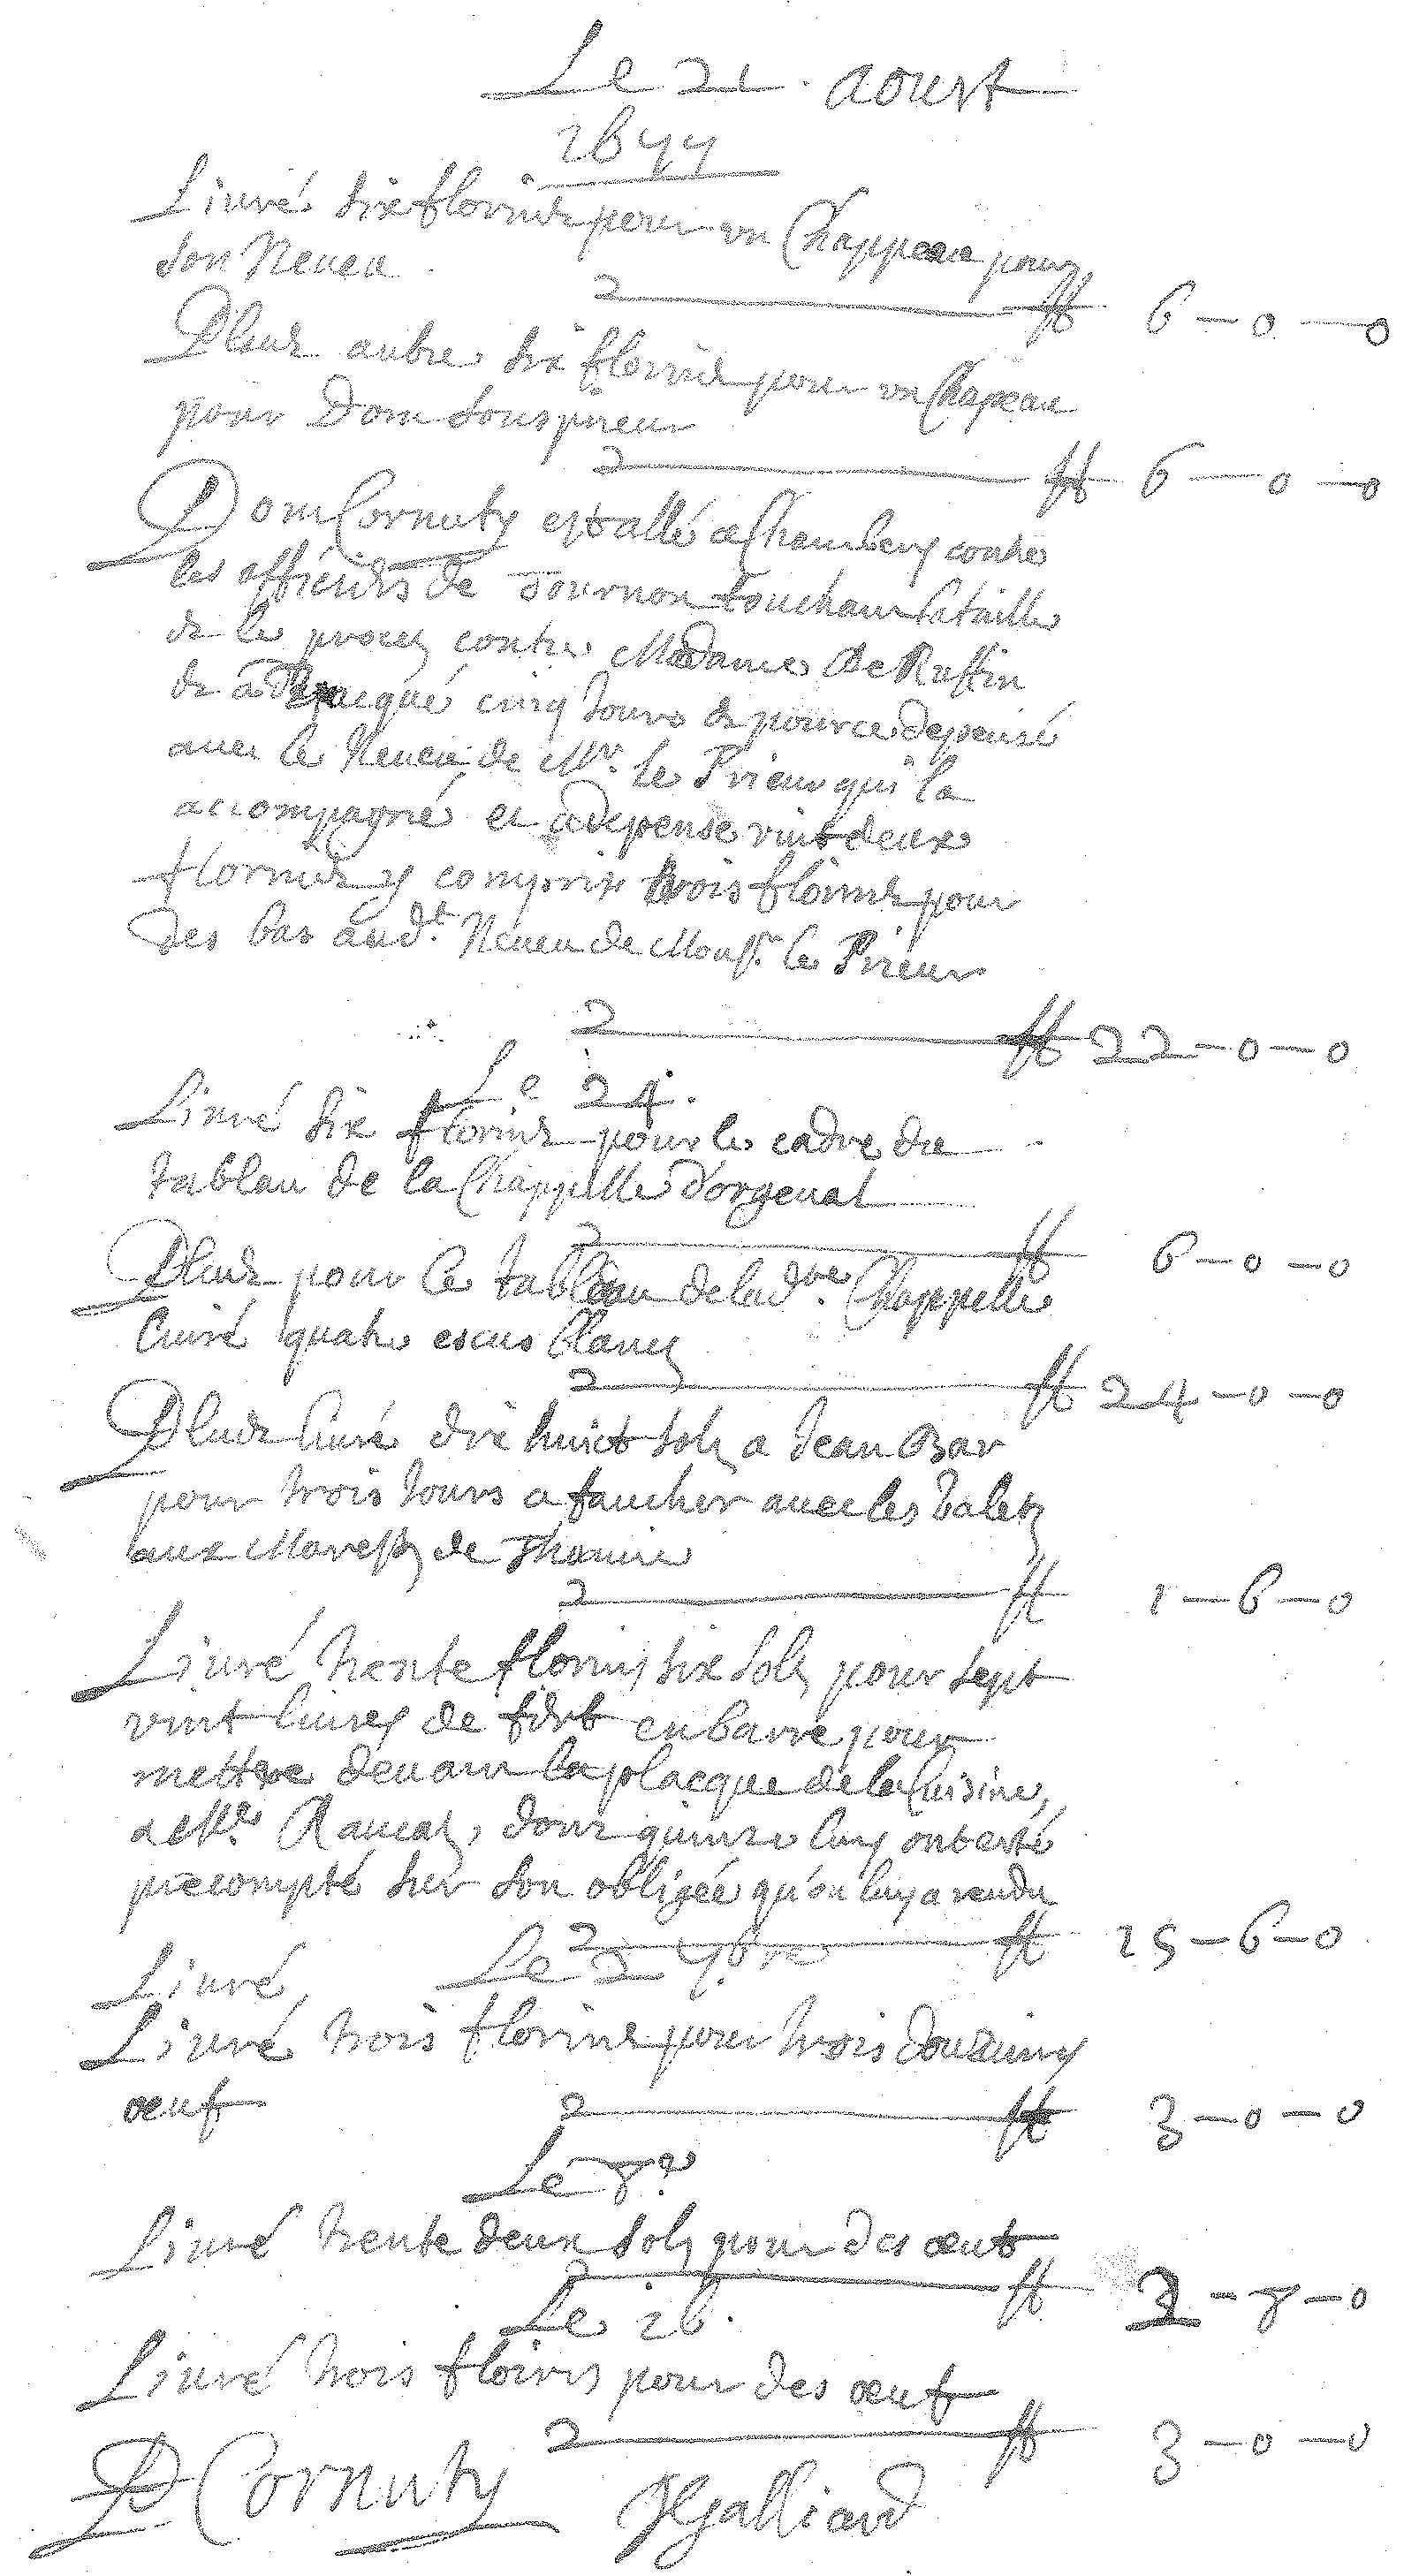 Le 21 aoust
1677
Liuré six florins pour un Chappeau pour
son Neueu
2 ff 6 - 0 - 0
Plus autre six florins pour un Chapeau
pour Dom Sousprieur
2 ff 6 - 0 - 0
Dom Cornuty est allé a Chambery contre
les officiers de Tournon touchant la taille
& le procez contre Madame de Ruffin
& a vacqué cinq Jours & pource depensé
auec le Neueu de Mr. le Prieur qui la
accompagné et a depensé vint deux
florins y compris trois florins pour
des bas audt. Neueu de Monsr. le Prieur
2 ff 22 - 0 - 0
Le 24.
Liuré six florins pour le cadre du
tablau de la Chappelle d'orgeual
2 ff 6 - 0 - 0
Plus pour le tableau de ladte. Chappelle
liuré quatre escus blancz
2 ff 24 - 0 - 0
Plus liuré dix huict solz a Jean Bar
pour trois Jours a faucher auec les Valetz
aux Marestz de
2 ff 1 - 6 - 0
Liuré trente florins six solz pour sept
vint liures de fert en barre pour
mettre deuant la placque de la Cuisine,
a Me. dont quinze luy ont esté
precompté sur son obligée qu'on luy a rendu
2 ff 15 - 6 - 0
Liuré, Le 2 7bre
Liuré trois florins pour trois douzaines
oeuf
2 ff 3 - 0 - 0
Le 8e
Liuré trente deux solz pour des oeufs
2 ff 2 - 8 - 0
Le 16.
Liuré trois florins pour des oeufs
2 ff 3 - 0 - 0
D Cornuty JGalliard